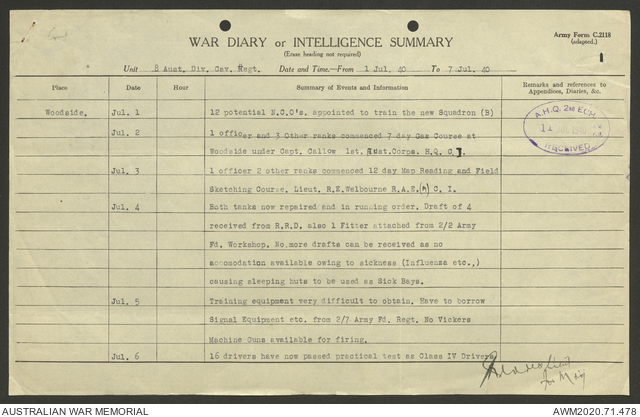 Army Form C.2118
(adapted.)
WAR DIARY or INTELLIGENCE SUMMARY
(Erase heading not required)
1
Unit 8 Aust. Div. Cav. Regt. Date and Time.—From 1 Jul. 40 To 7 Jul. 40
Place Date Hour Summary of Events and Information Remarks and references to Appendices, Diaries, &c.
Woodside. Jul. 1 12 potential N.C.O's. appointed to train the new Squadron (B)
A.H.Q. 2nd ECH.
RECEIVED
Jul. 2 1 officer and 3 Other ranks commenced 7 day Gas Course at
Woodside under Capt. Callow 1st. Aust.Corps. H.Q. C.I.
Jul. 3 1 officer 2 other ranks commenced 12 day Map Reading and Field
Sketching Course. Lieut. R.E.Welbourne R.A.E.(M) C. I.
Jul. 4 Both tanks now repaired and in running order. Draft of 4
received from R.R.D. also 1 Fitter attached from 2/2 Army
Fd. Workshop. No.more drafts can be received as no
accomodation available owing to sickness (Influenza etc.,)
causing sleeping huts to be used as Sick Bays.
Jul. 5 Training equipment very difficult to obtain. Have to borrow
Signal Equipment etc. from 2/7 Army Fd. Regt. No Vickers
Machine Guns available for firing.
Jul. 6 16 drivers have now passed practical test as Class IV Drivers
AUSTRALIAN WAR MEMORIAL AWM2020.71.478